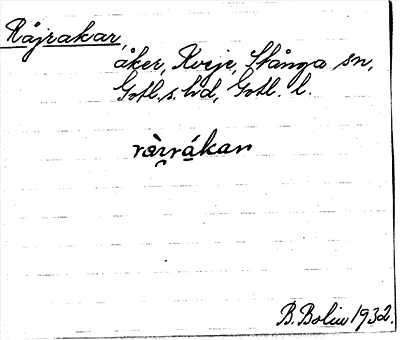 Råjrakar,
åker, Kvije, Stånga sn,
Gotl. s. hd, Gotl. l.
B. Bolin 1932.